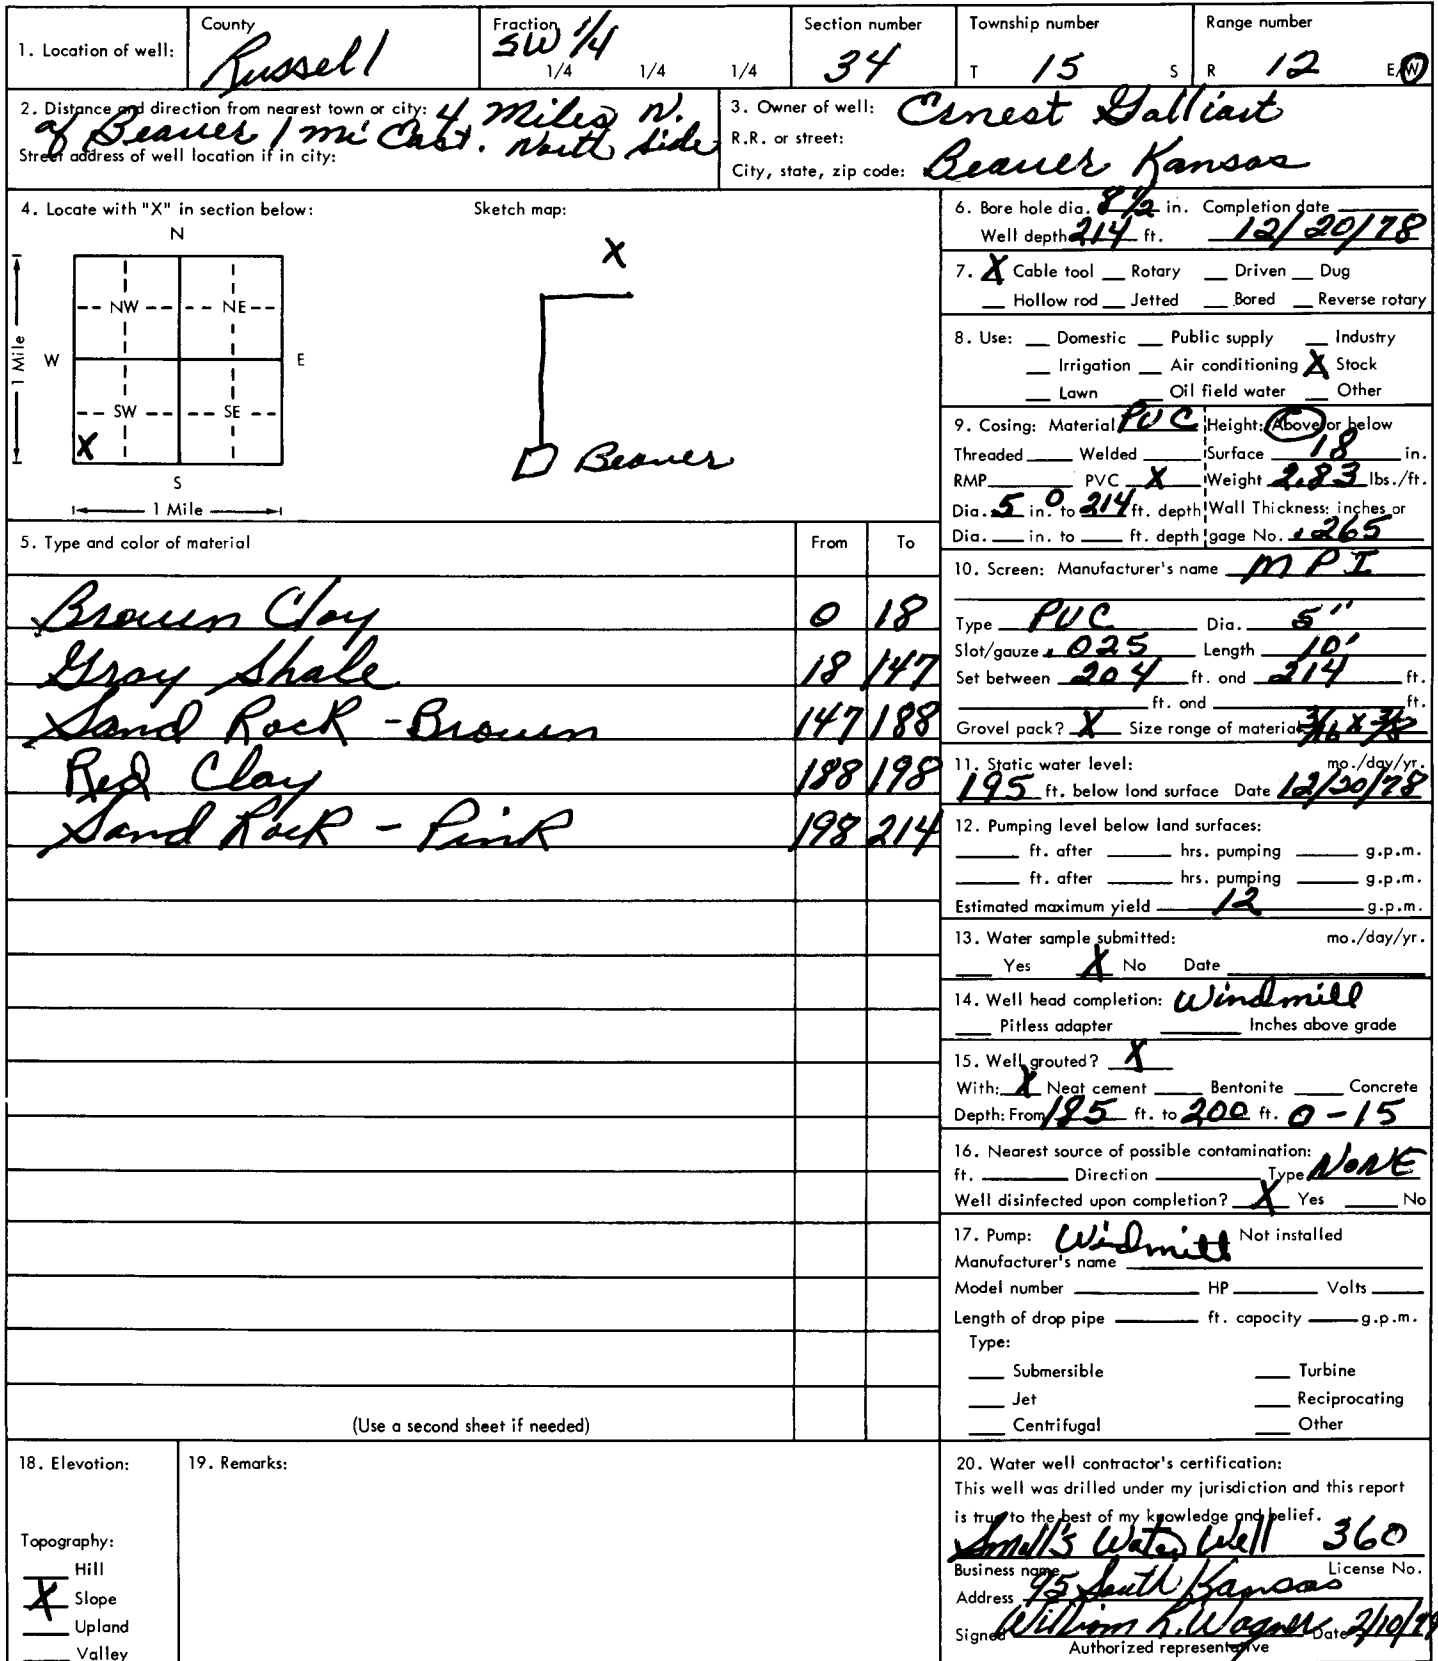 1. Location of well: County Russell Fraction SW 1/4 1/4 1/4 1/4 Section number 34 Township number T 15 S Range number R 12 E/W
2. Distance and direction from nearest town or city: 4 Miles N.
of Beaver 1 mi East. North Side
Street address of well location if in city:
3. Owner of well: Ernest Galliart
R.R. or street:
City, state, zip code: Beaver Kansas
4. Locate with "X" in section below: Sketch map:
N
X
NW NE
1 Mile W E
SW SE
X
Beaver
S
1 Mile
5. Type and color of material From To
Brown Clay 0 18
Gray Shale 18 147
Sand Rock - Brown 147 188
Red Clay 188 198
Sand Rock - Pink 198 214
(Use a second sheet if needed)
6. Bore hole dia. 8 1/2 in. Completion date
Well depth 214 ft. 12/20/78
7. X Cable tool Rotary Driven Dug
Hollow rod Jetted Bored Reverse rotary
8. Use: Domestic Public supply Industry
Irrigation Air conditioning X Stock
Lawn Oil field water Other
9. Casing: Material PVC Height: Above or below
Threaded Welded Surface 18 in.
RMP PVC X Weight 2.83 lbs./ft.
Dia. 5 in. 0 to 214 ft. depth Wall Thickness: inches or
Dia. in. to ft. depth gage No. .265
10. Screen: Manufacturer's name MPI
Type PVC Dia. 5"
Slot/gauze .025 Length 10'
Set between 204 ft. and 214 ft.
ft. and ft.
Gravel pack? X Size range of material 3/16 x 3/8
11. Static water level: mo./day/yr.
195 ft. below land surface Date 12/20/78
12. Pumping level below land surfaces:
ft. after hrs. pumping g.p.m.
ft. after hrs. pumping g.p.m.
Estimated maximum yield 12 g.p.m.
13. Water sample submitted: mo./day/yr.
Yes X No Date
14. Well head completion: Windmill
Pitless adapter Inches above grade
15. Well grouted? X
With: X Neat cement Bentonite Concrete
Depth: From 185 ft. to 200 ft. 0-15
16. Nearest source of possible contamination:
ft. Direction Type NONE
Well disinfected upon completion? X Yes No
17. Pump: Windmill Not installed
Manufacturer's name
Model number HP Volts
Length of drop pipe ft. capacity g.p.m.
Type:
Submersible Turbine
Jet Reciprocating
Centrifugal Other
18. Elevation:
Topography:
Hill
X Slope
Upland
Valley
19. Remarks:
20. Water well contractor's certification:
This well was drilled under my jurisdiction and this report
is true to the best of my knowledge and belief.
Water Well 360
Business name License No.
Address 95 South Kansas
Signed William L. Wagner Date 2/10/79
Authorized representative